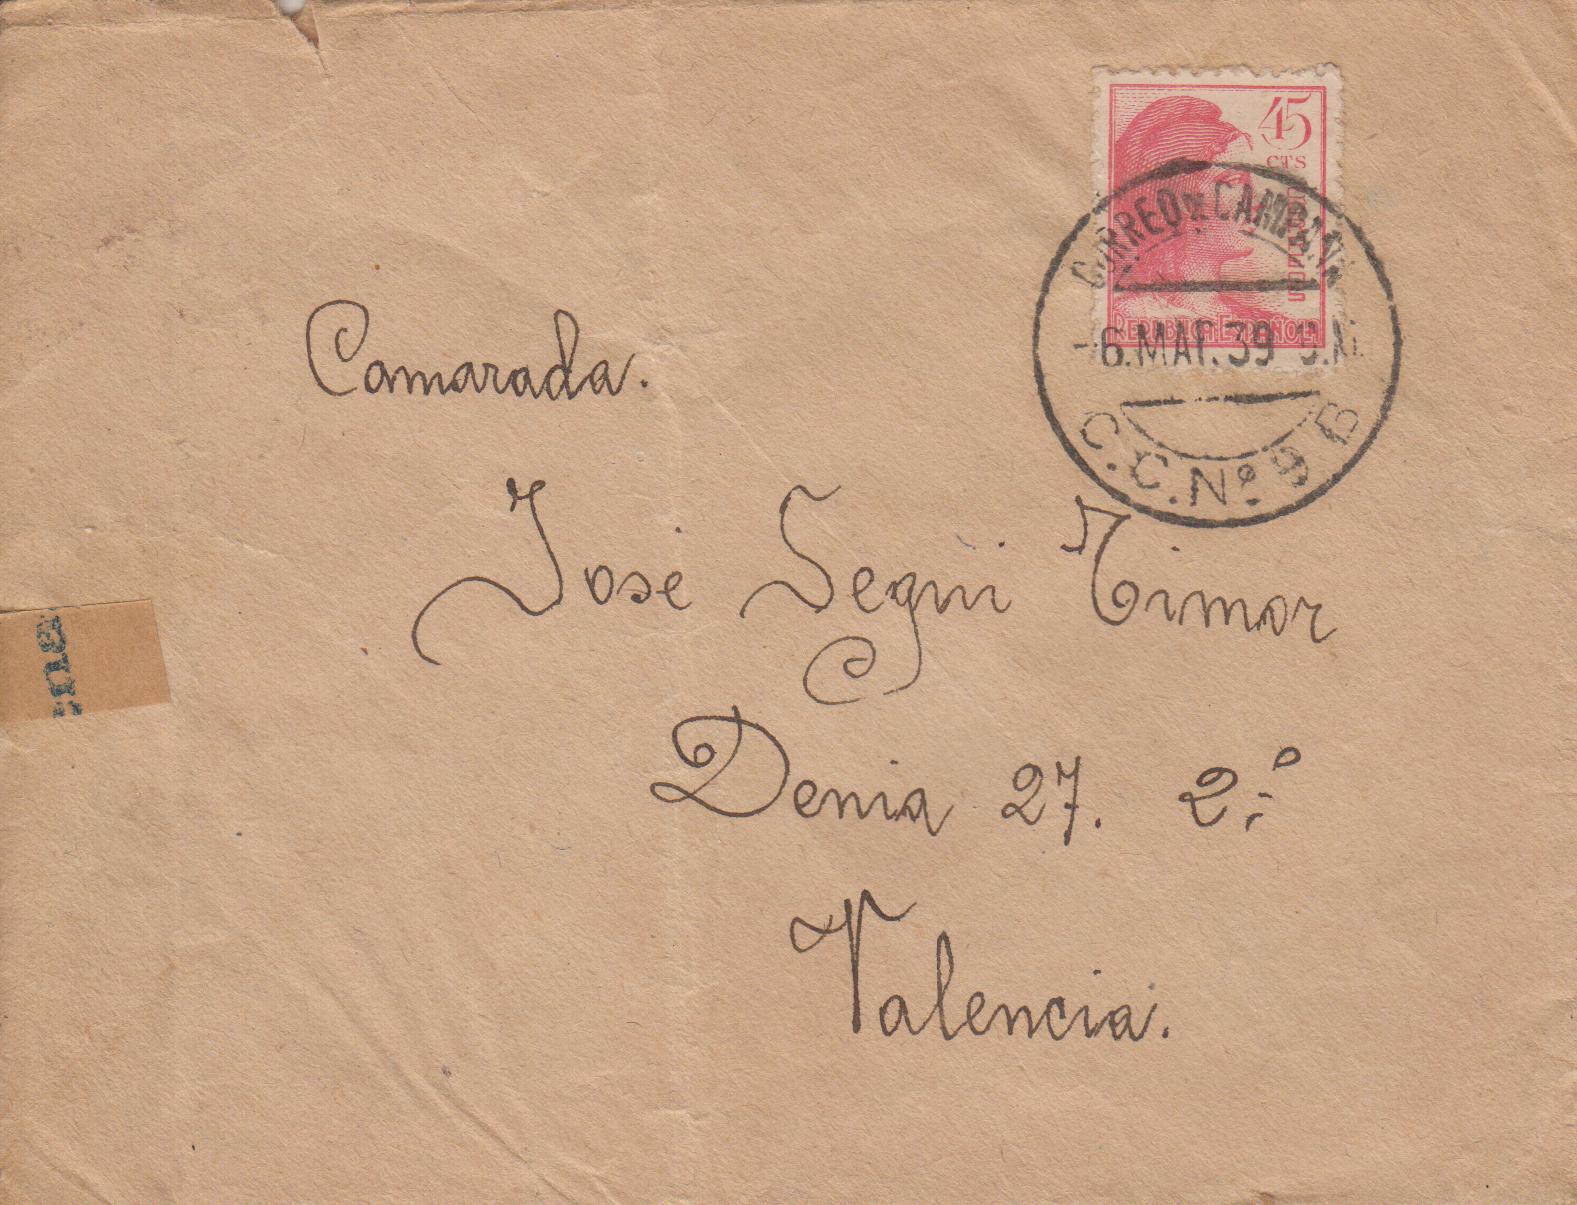 45
CTS
CORREOS
REPÚBLICA ESPAÑOLA
CORREO DE CAMPAÑA
-6.MAR.39
C.C.Nº 9 B
Camarada.
José Seguí Timor
Denia 27. 2.º
Valencia.